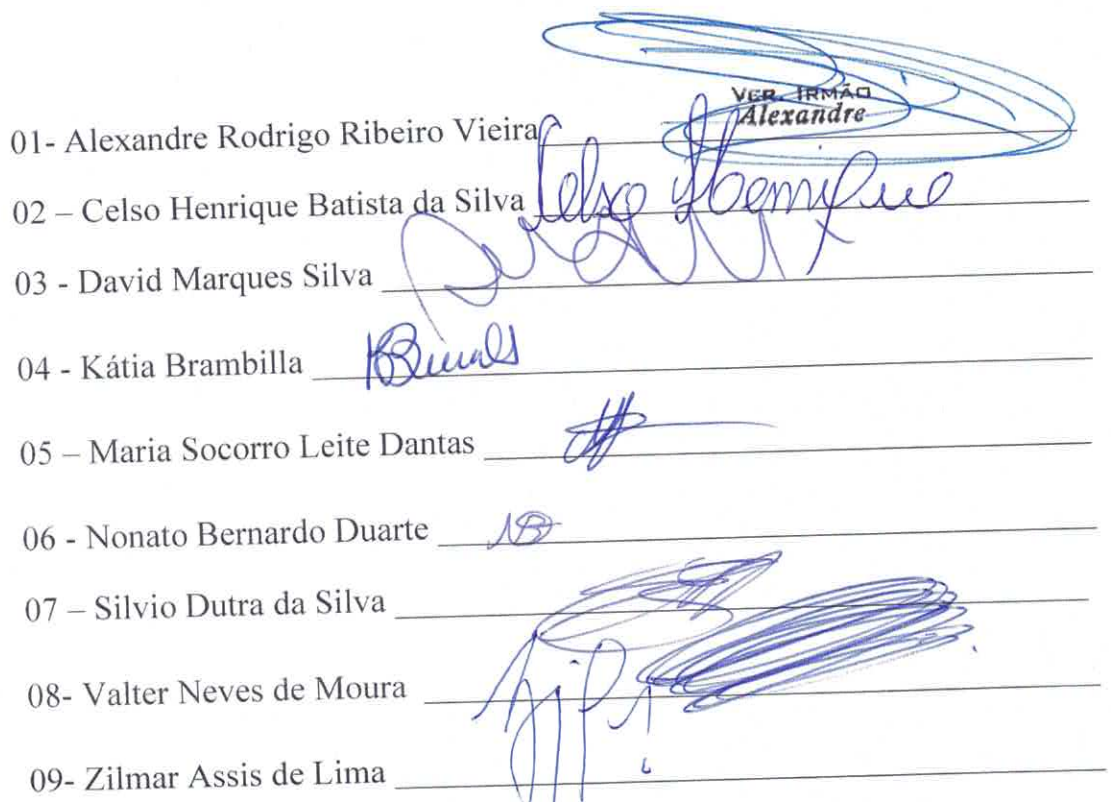 VER. IRMÃO
Alexandre
01- Alexandre Rodrigo Ribeiro Vieira
02 – Celso Henrique Batista da Silva Celso Henrique
03 - David Marques Silva
04 - Kátia Brambilla
05 – Maria Socorro Leite Dantas
06 - Nonato Bernardo Duarte
07 – Silvio Dutra da Silva
08- Valter Neves de Moura
09- Zilmar Assis de Lima